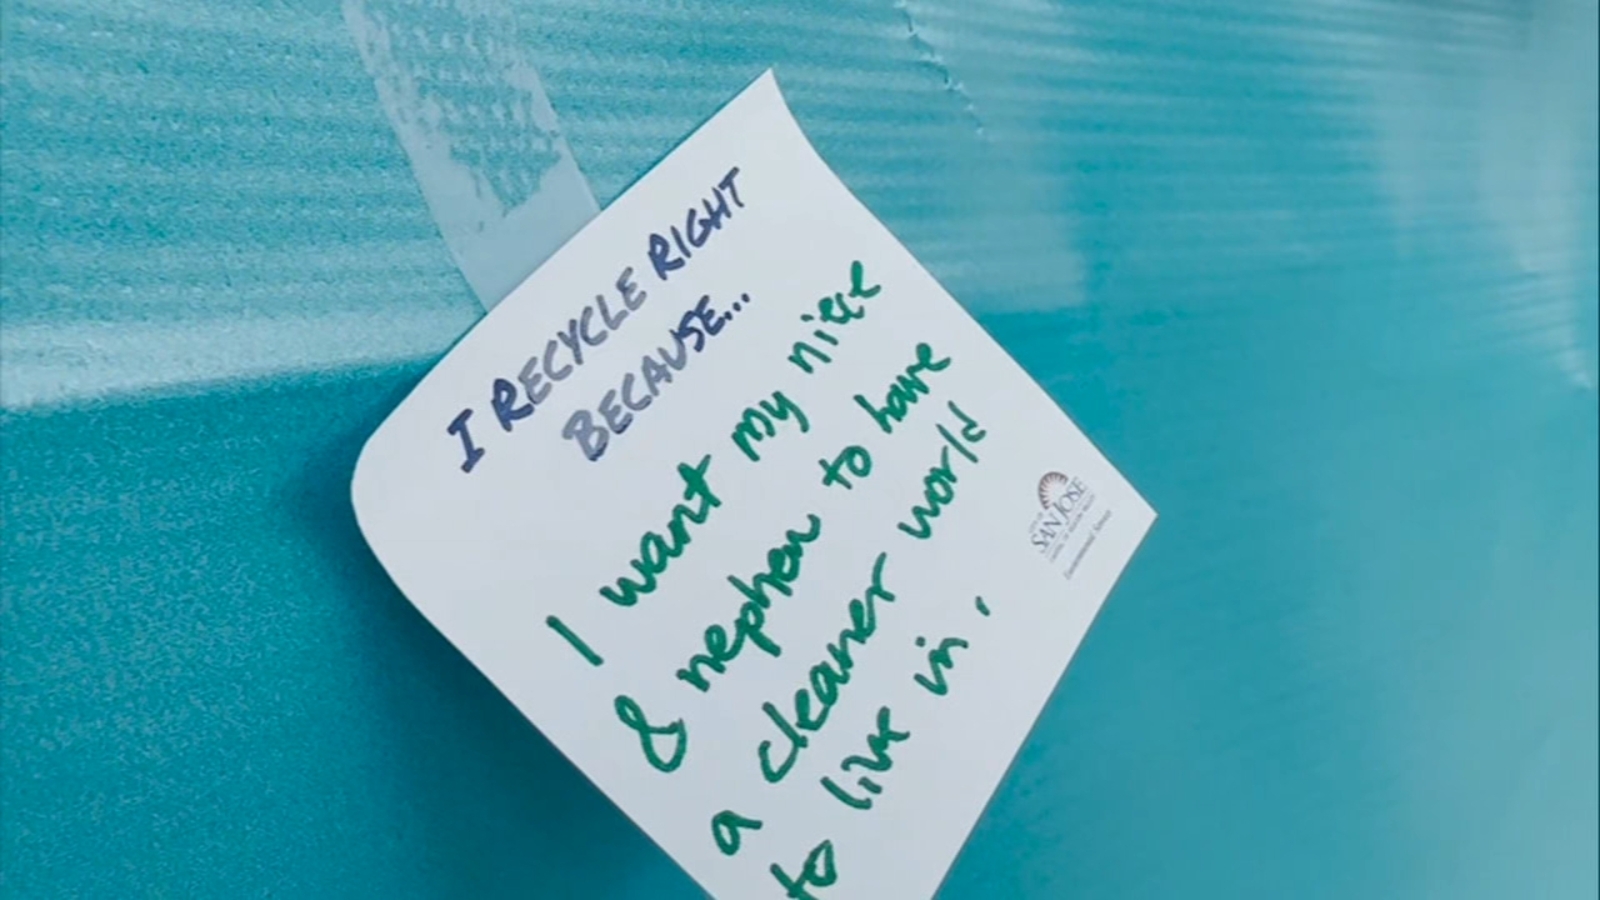 I RECYCLE RIGHT
BECAUSE...
I want my niece
& nephew to have
a cleaner world
to live in.
CITY OF
SAN JOSE
CAPITAL OF SILICON VALLEY
Environmental Services